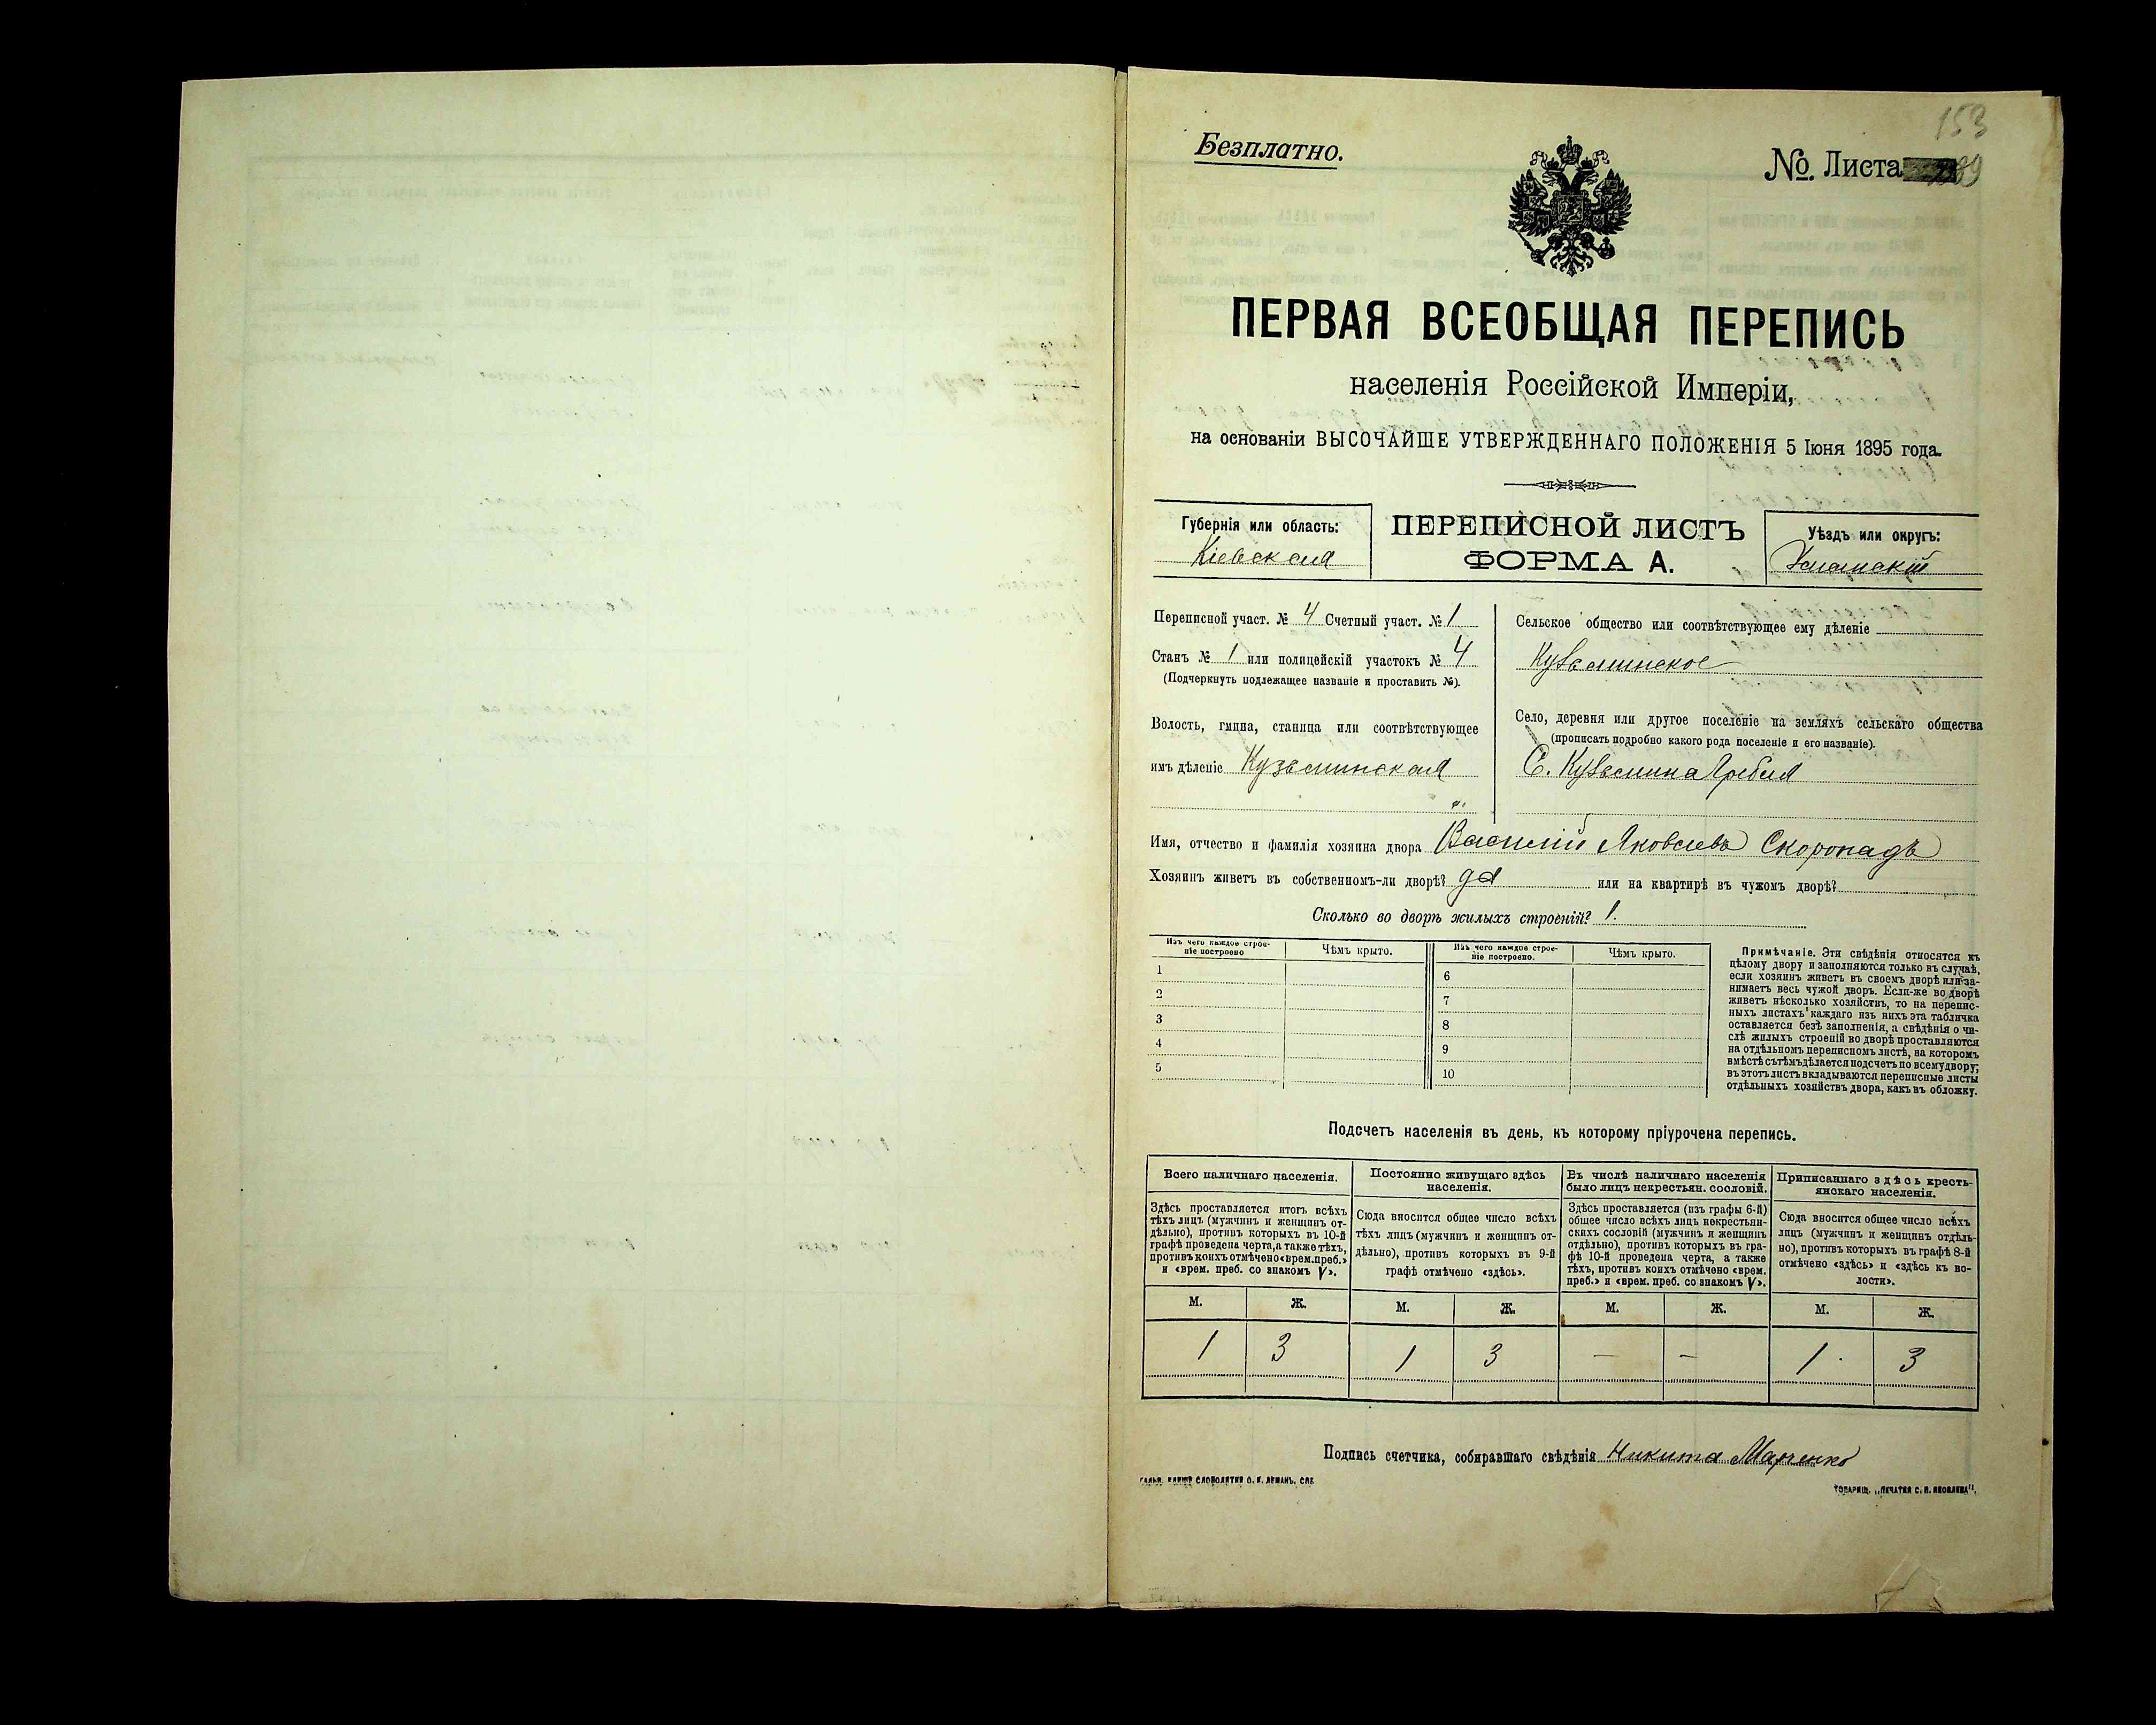 153
Безплатно.
№. Листа 89
ПЕРВАЯ ВСЕОБЩАЯ ПЕРЕПИСЬ
населенія Россійской Имперіи,
на основаніи ВЫСОЧАЙШЕ УТВЕРЖДЕННАГО ПОЛОЖЕНІЯ 5 Іюня 1895 года.
Губернія или область:
Кіевская
ПЕРЕПИСНОЙ ЛИСТЪ
ФОРМА А.
Уѣздъ или округъ:
Уманскій
Переписной участ. № 4 Счетный участ. № 1
Станъ № 1 или полицейскій участокъ № 4
(Подчеркнуть подлежащее названіе и проставить №).
Волость, гмина, станица или соотвѣтствующее
имъ дѣленіе Кузьминская
Сельское общество или соотвѣтствующее ему дѣленіе
Кузьминское
Село, деревня или другое поселеніе на земляхъ сельскаго общества
(прописать подробно какого рода поселеніе и его названіе).
С. Кузьмина Гребля
Имя, отчество и фамилія хозяина двора Василій Яковлевъ Скоропадъ
Хозяинъ живетъ въ собственномъ-ли дворѣ? да или на квартирѣ въ чужомъ дворѣ?
Сколько во дворѣ жилыхъ строеній? 1.
Изъ чего каждое строе-
ніе построено
Чѣмъ крыто.
Изъ чего каждое строе-
ніе построено.
Чѣмъ крыто.
1
2
3
4
5
6
7
8
9
10
Примѣчаніе. Эти свѣдѣнія относятся къ
цѣлому двору и заполняются только въ случаѣ,
если хозяинъ живетъ въ своемъ дворѣ или за-
нимаетъ весь чужой дворъ. Если-же во дворѣ
живетъ нѣсколько хозяйствъ, то на перепис-
ныхъ листахъ каждаго изъ нихъ эта табличка
оставляется безъ заполненія, а свѣдѣнія о чи-
слѣ жилыхъ строеній во дворѣ проставляются
на отдѣльномъ переписномъ листѣ, на которомъ
вмѣстѣ съ тѣмъ дѣлается подсчетъ по всему двору;
въ этотъ листъ вкладываются переписные листы
отдѣльныхъ хозяйствъ двора, какъ въ обложку.
Подсчетъ населенія въ день, къ которому пріурочена перепись.
Всего наличнаго населенія.
Здѣсь проставляется итогъ всѣхъ
тѣхъ лицъ (мужчинъ и женщинъ от-
дѣльно), противъ которыхъ въ 10-й
графѣ проведена черта, а также тѣхъ,
противъ коихъ отмѣчено «врем. преб.»
и «врем. преб. со знакомъ V».
Постоянно живущаго здѣсь
населенія.
Сюда вносится общее число всѣхъ
тѣхъ лицъ (мужчинъ и женщинъ от-
дѣльно), противъ которыхъ въ 9-й
графѣ отмѣчено «здѣсь».
Въ числѣ наличнаго населенія
было лицъ некрестьян. сословій.
Здѣсь проставляется (изъ графы 6-й)
общее число всѣхъ лицъ некрестьян-
скихъ сословій (мужчинъ и женщинъ
отдѣльно), противъ которыхъ въ гра-
фѣ 10-й проведена черта, а также
тѣхъ, противъ коихъ отмѣчено «врем.
преб.» и «врем. преб. со знакомъ V».
Приписаннаго здѣсь кресть-
янскаго населенія.
Сюда вносится общее число всѣхъ
лицъ (мужчинъ и женщинъ отдѣль-
но), противъ которыхъ въ графѣ 8-й
отмѣчено «здѣсь» и «здѣсь къ во-
лости».
М. Ж. М. Ж. М. Ж. М. Ж.
1 3 1 3 — — 1 3
Подпись счетчика, собиравшаго свѣдѣнія Никита Марченко
ГАЛЬВ. КЛИШЕ СЛОВОЛИТНИ О. И. ЛЕМАНЪ, СПБ
ТОВАРИЩ. „ПЕЧАТНЯ С. П. ЯКОВЛЕВА".